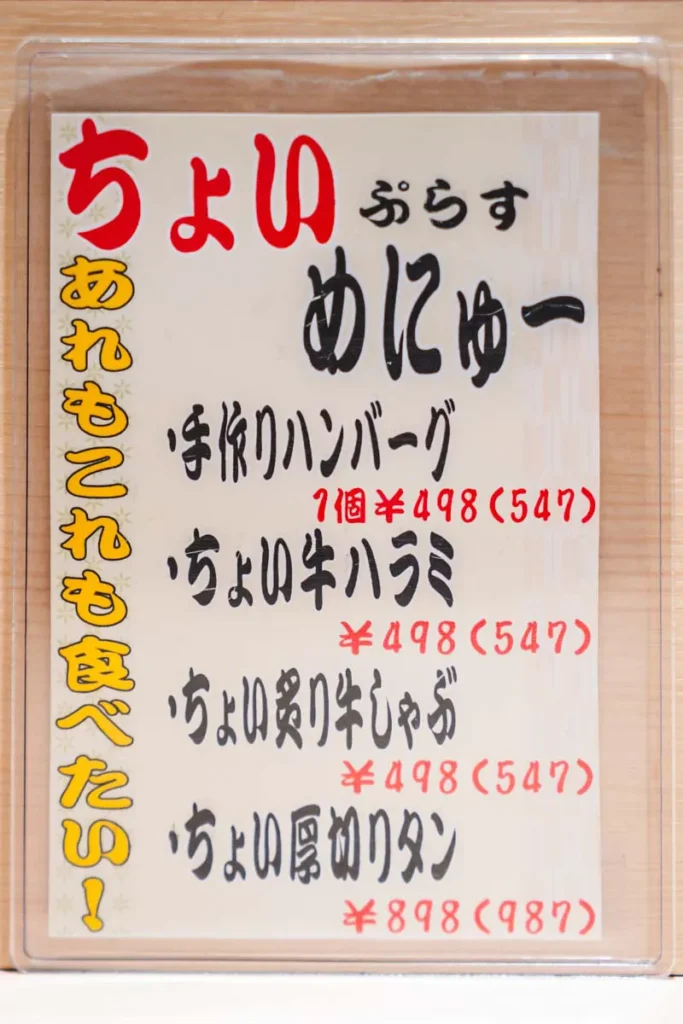 ちょい ぷらす
めにゅー
あれもこれも食べたい！
・手作りハンバーグ
1個¥498(547)
・ちょい牛ハラミ
¥498(547)
・ちょい炙り牛しゃぶ
¥498(547)
・ちょい厚切りタン
¥898(987)